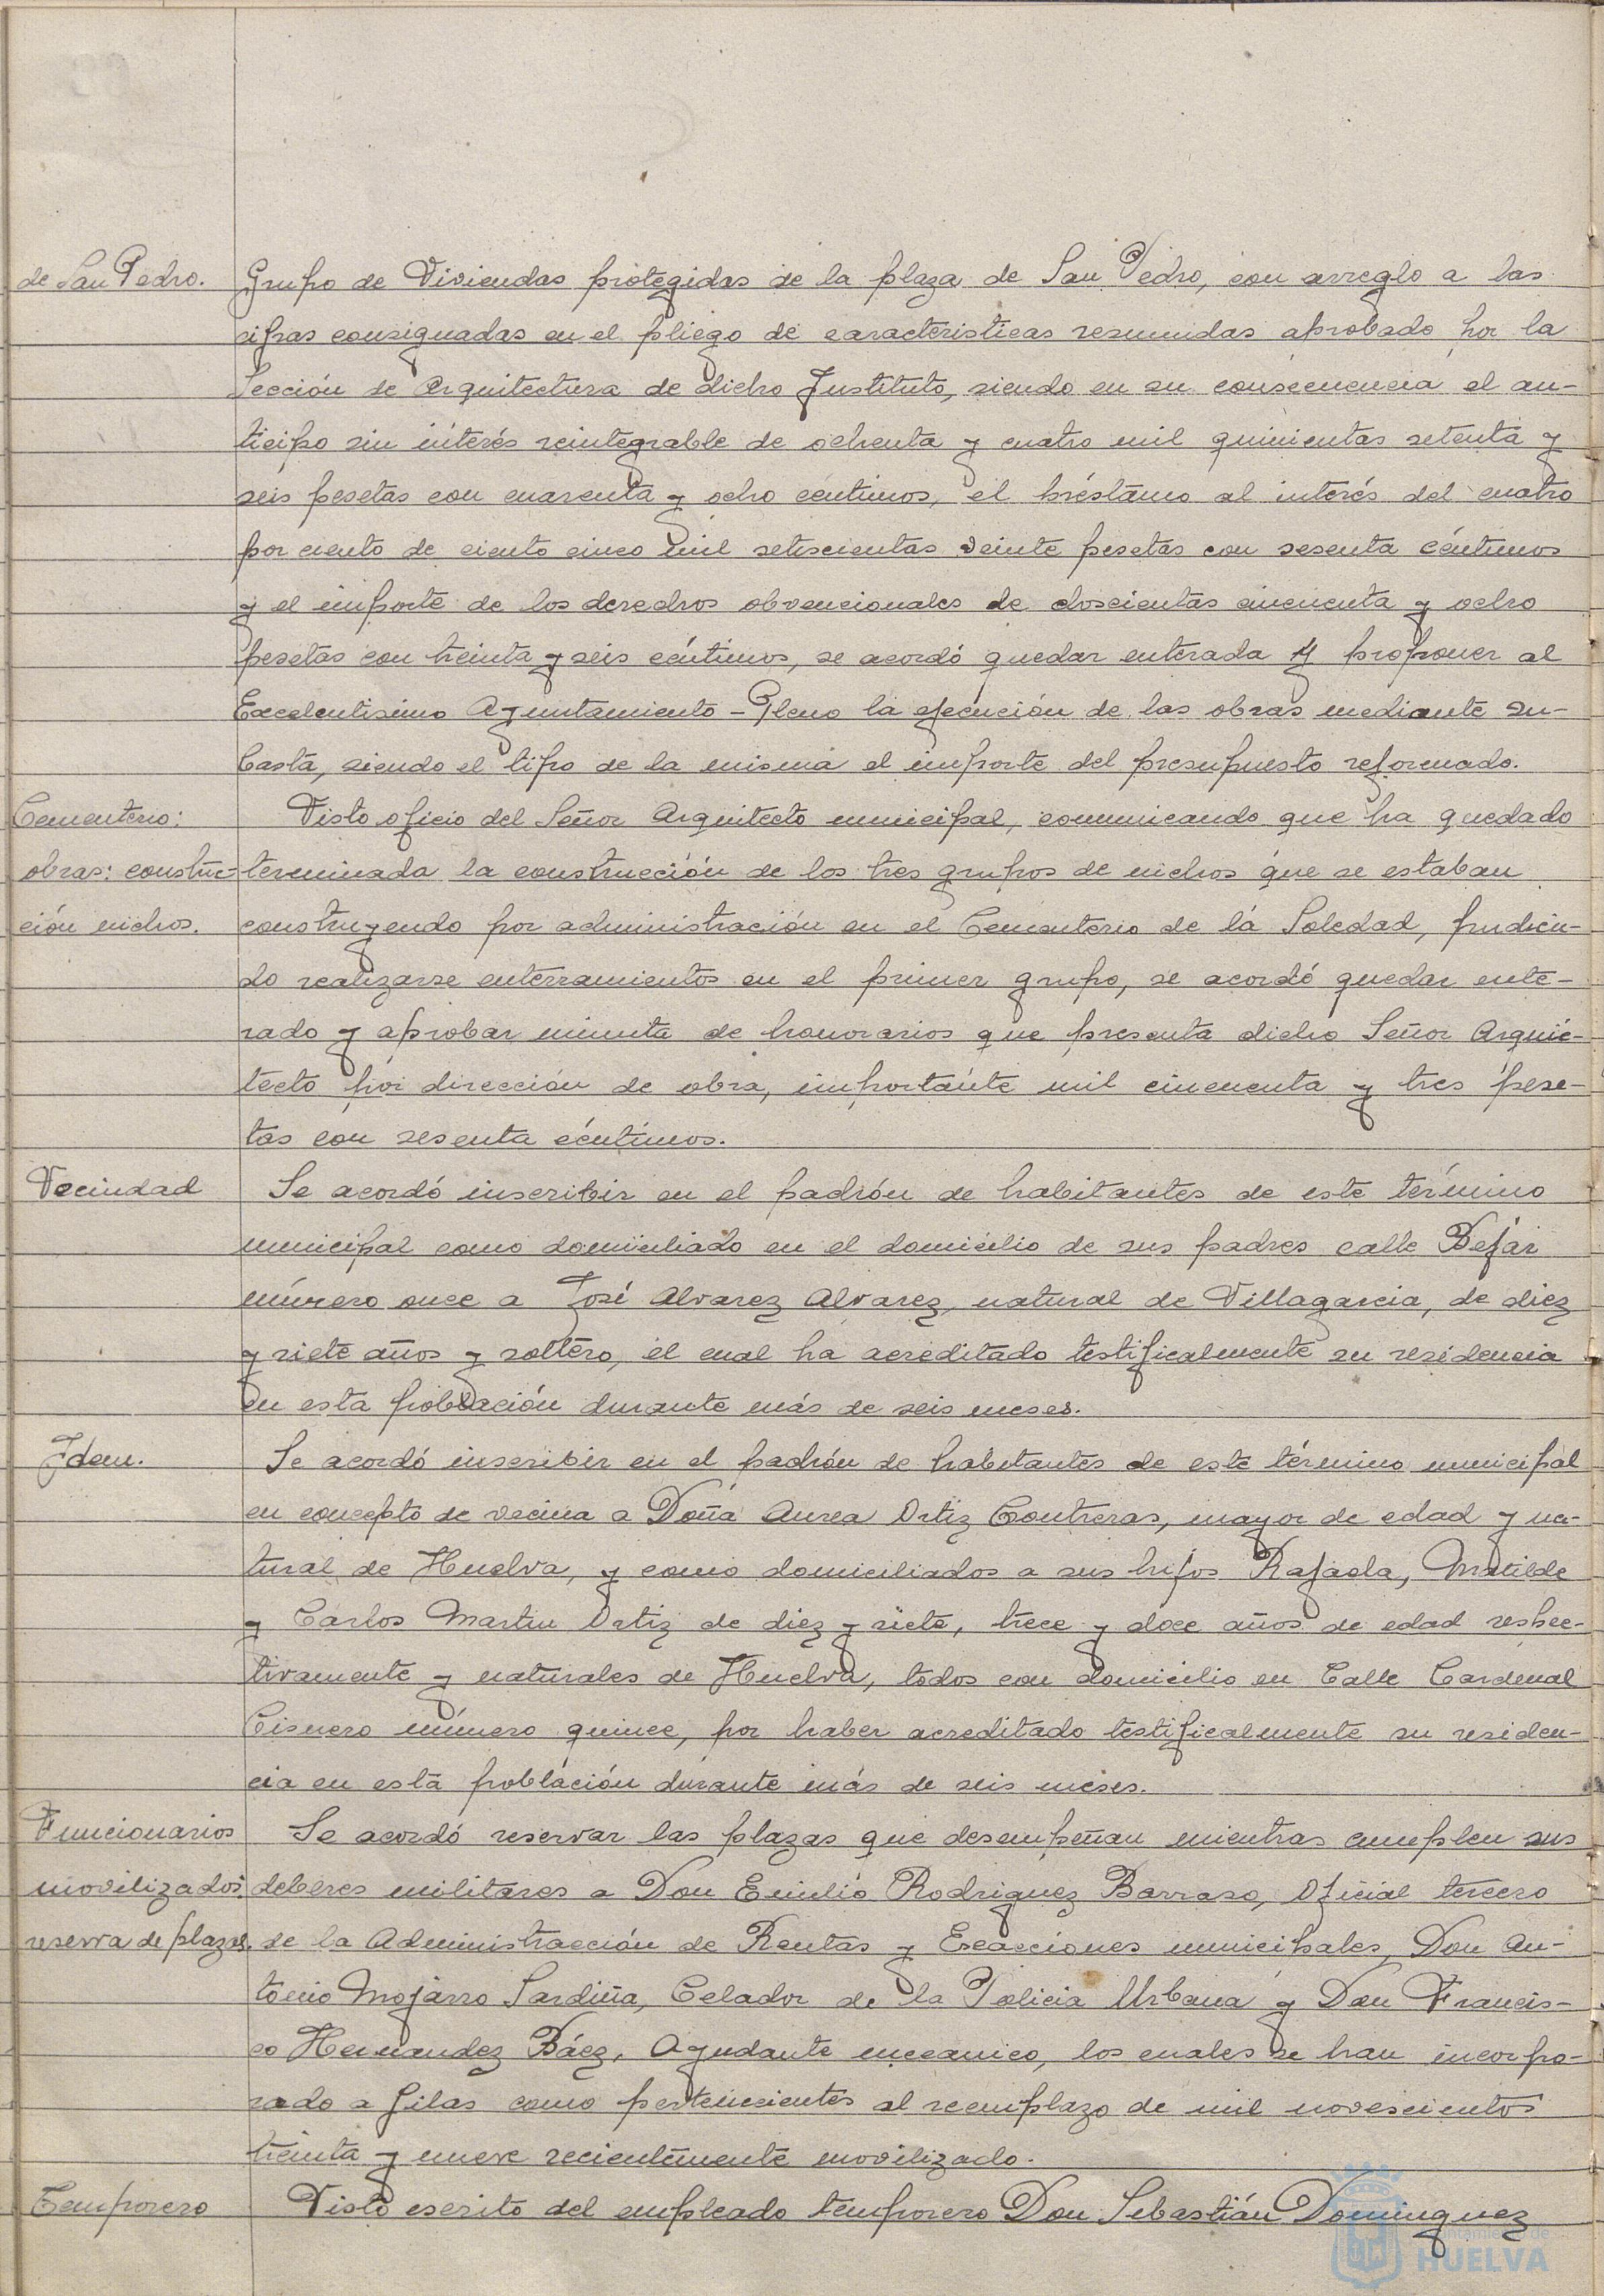 de San Pedro. Grupo de Viviendas protegidas de la plaza de San Pedro, con arreglo a las
cifras consignadas en el pliego de caracteristicas resumidas aprobado por la
Sección de Arquitectura de dicho Instituto, siendo en su consecuencia el an-
ticipo sin interés reintegrable de ochenta y cuatro mil quinientas setenta y
seis pesetas con cuarenta y ocho centimos, el préstamo al interés del cuatro
por ciento de ciento cinco mil setecientas veinte pesetas con sesenta céntimos
y el importe de los derechos obvencionales de doscientas cincuenta y ocho
pesetas con treinta y seis céntimos, se acordó quedar enterada y proponer al
Excelentisimo Ayuntamiento-Pleno la ejecución de las obras mediante su-
basta, siendo el tipo de la misma el importe del presupuesto reformado.
Cementerio: Visto oficio del Señor Arquitecto municipal, comunicando que ha quedado
obras: construc- terminada la construcción de los tres grupos de nichos que se estaban
ción nichos. construyendo por administración en el Cementerio de la Soledad, pudien-
do realizarse enterramientos en el primer grupo, se acordó quedar ente-
rado y aprobar minuta de honorarios que presenta dicho Señor Arquic-
tecto por dirección de obra, importante mil cincuenta y tres pese-
tas con sesenta céntimos.
Vecindad Se acordó inscribir en el padrón de habitantes de este término
municipal como domiciliado en el domicilio de sus padres calle Bejar
número once a José Alvarez Alvarez, natural de Villagarcia, de diez
y siete años y soltero, el cual ha acreditado testificalmente su residencia
en esta población durante más de seis meses.
Idem. Se acordó inscribir en el padrón de habitantes de este término municipal
en concepto de vecina a Doña Aurea Ortiz Contreras, mayor de edad y na-
tural de Huelva, y como domiciliados a sus hijos Rafaela, Matilde
y Carlos Martin Ortiz de diez y siete, trece y doce años de edad respec-
tivamente y naturales de Huelva, todos con domicilio en Calle Cardenal
Cisnero número quince, por haber acreditado testificalmente su residen-
cia en esta población durante más de seis meses.
Funcionarios Se acordó reservar las plazas que desempeñan mientras cumplen sus
movilizados, deberes militares a Don Emilio Rodriguez Barraso, Oficial tercero
reserva de plazas. de la Administracción de Rentas y Exacciones municipales, Don An-
tonio Mojarro Sardiña, Celador de la Policia Urbana y Don Francis-
co Hernandez Báez, Ayudante mecanico, los cuales se han incorpo-
rado a filas como pertenecientes al reemplazo de mil novescientos
treinta y nueve recientemente movilizado.
Temporero Visto escrito del empleado temporero Don Sebastián Dominguez
Ayuntamiento de
HUELVA